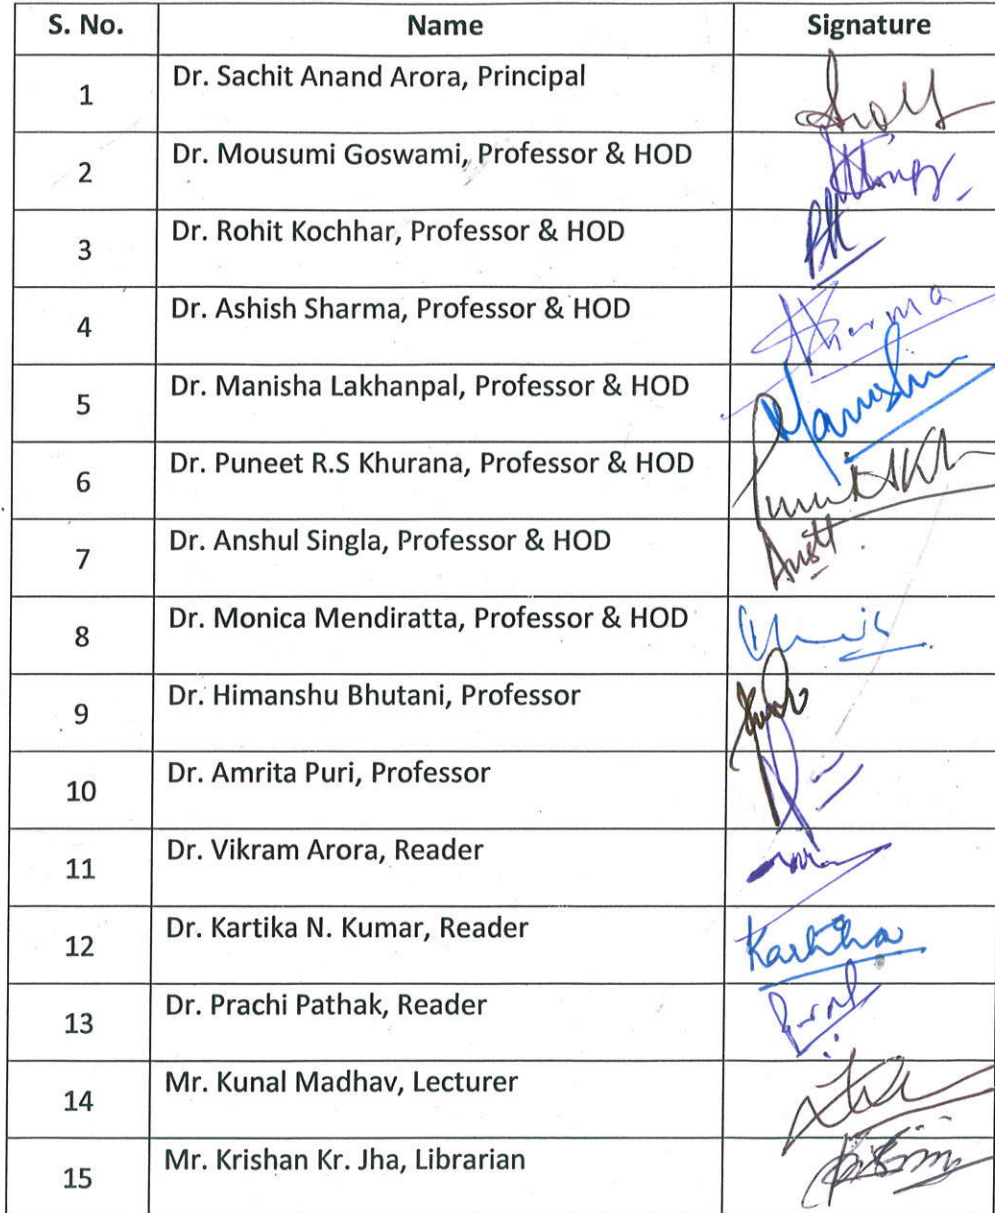 S. No. Name Signature
1 Dr. Sachit Anand Arora, Principal
2 Dr. Mousumi Goswami, Professor & HOD
3 Dr. Rohit Kochhar, Professor & HOD
4 Dr. Ashish Sharma, Professor & HOD Sharma
5 Dr. Manisha Lakhanpal, Professor & HOD
6 Dr. Puneet R.S Khurana, Professor & HOD
7 Dr. Anshul Singla, Professor & HOD
8 Dr. Monica Mendiratta, Professor & HOD
9 Dr. Himanshu Bhutani, Professor
10 Dr. Amrita Puri, Professor
11 Dr. Vikram Arora, Reader
12 Dr. Kartika N. Kumar, Reader Kartika
13 Dr. Prachi Pathak, Reader
14 Mr. Kunal Madhav, Lecturer
15 Mr. Krishan Kr. Jha, Librarian